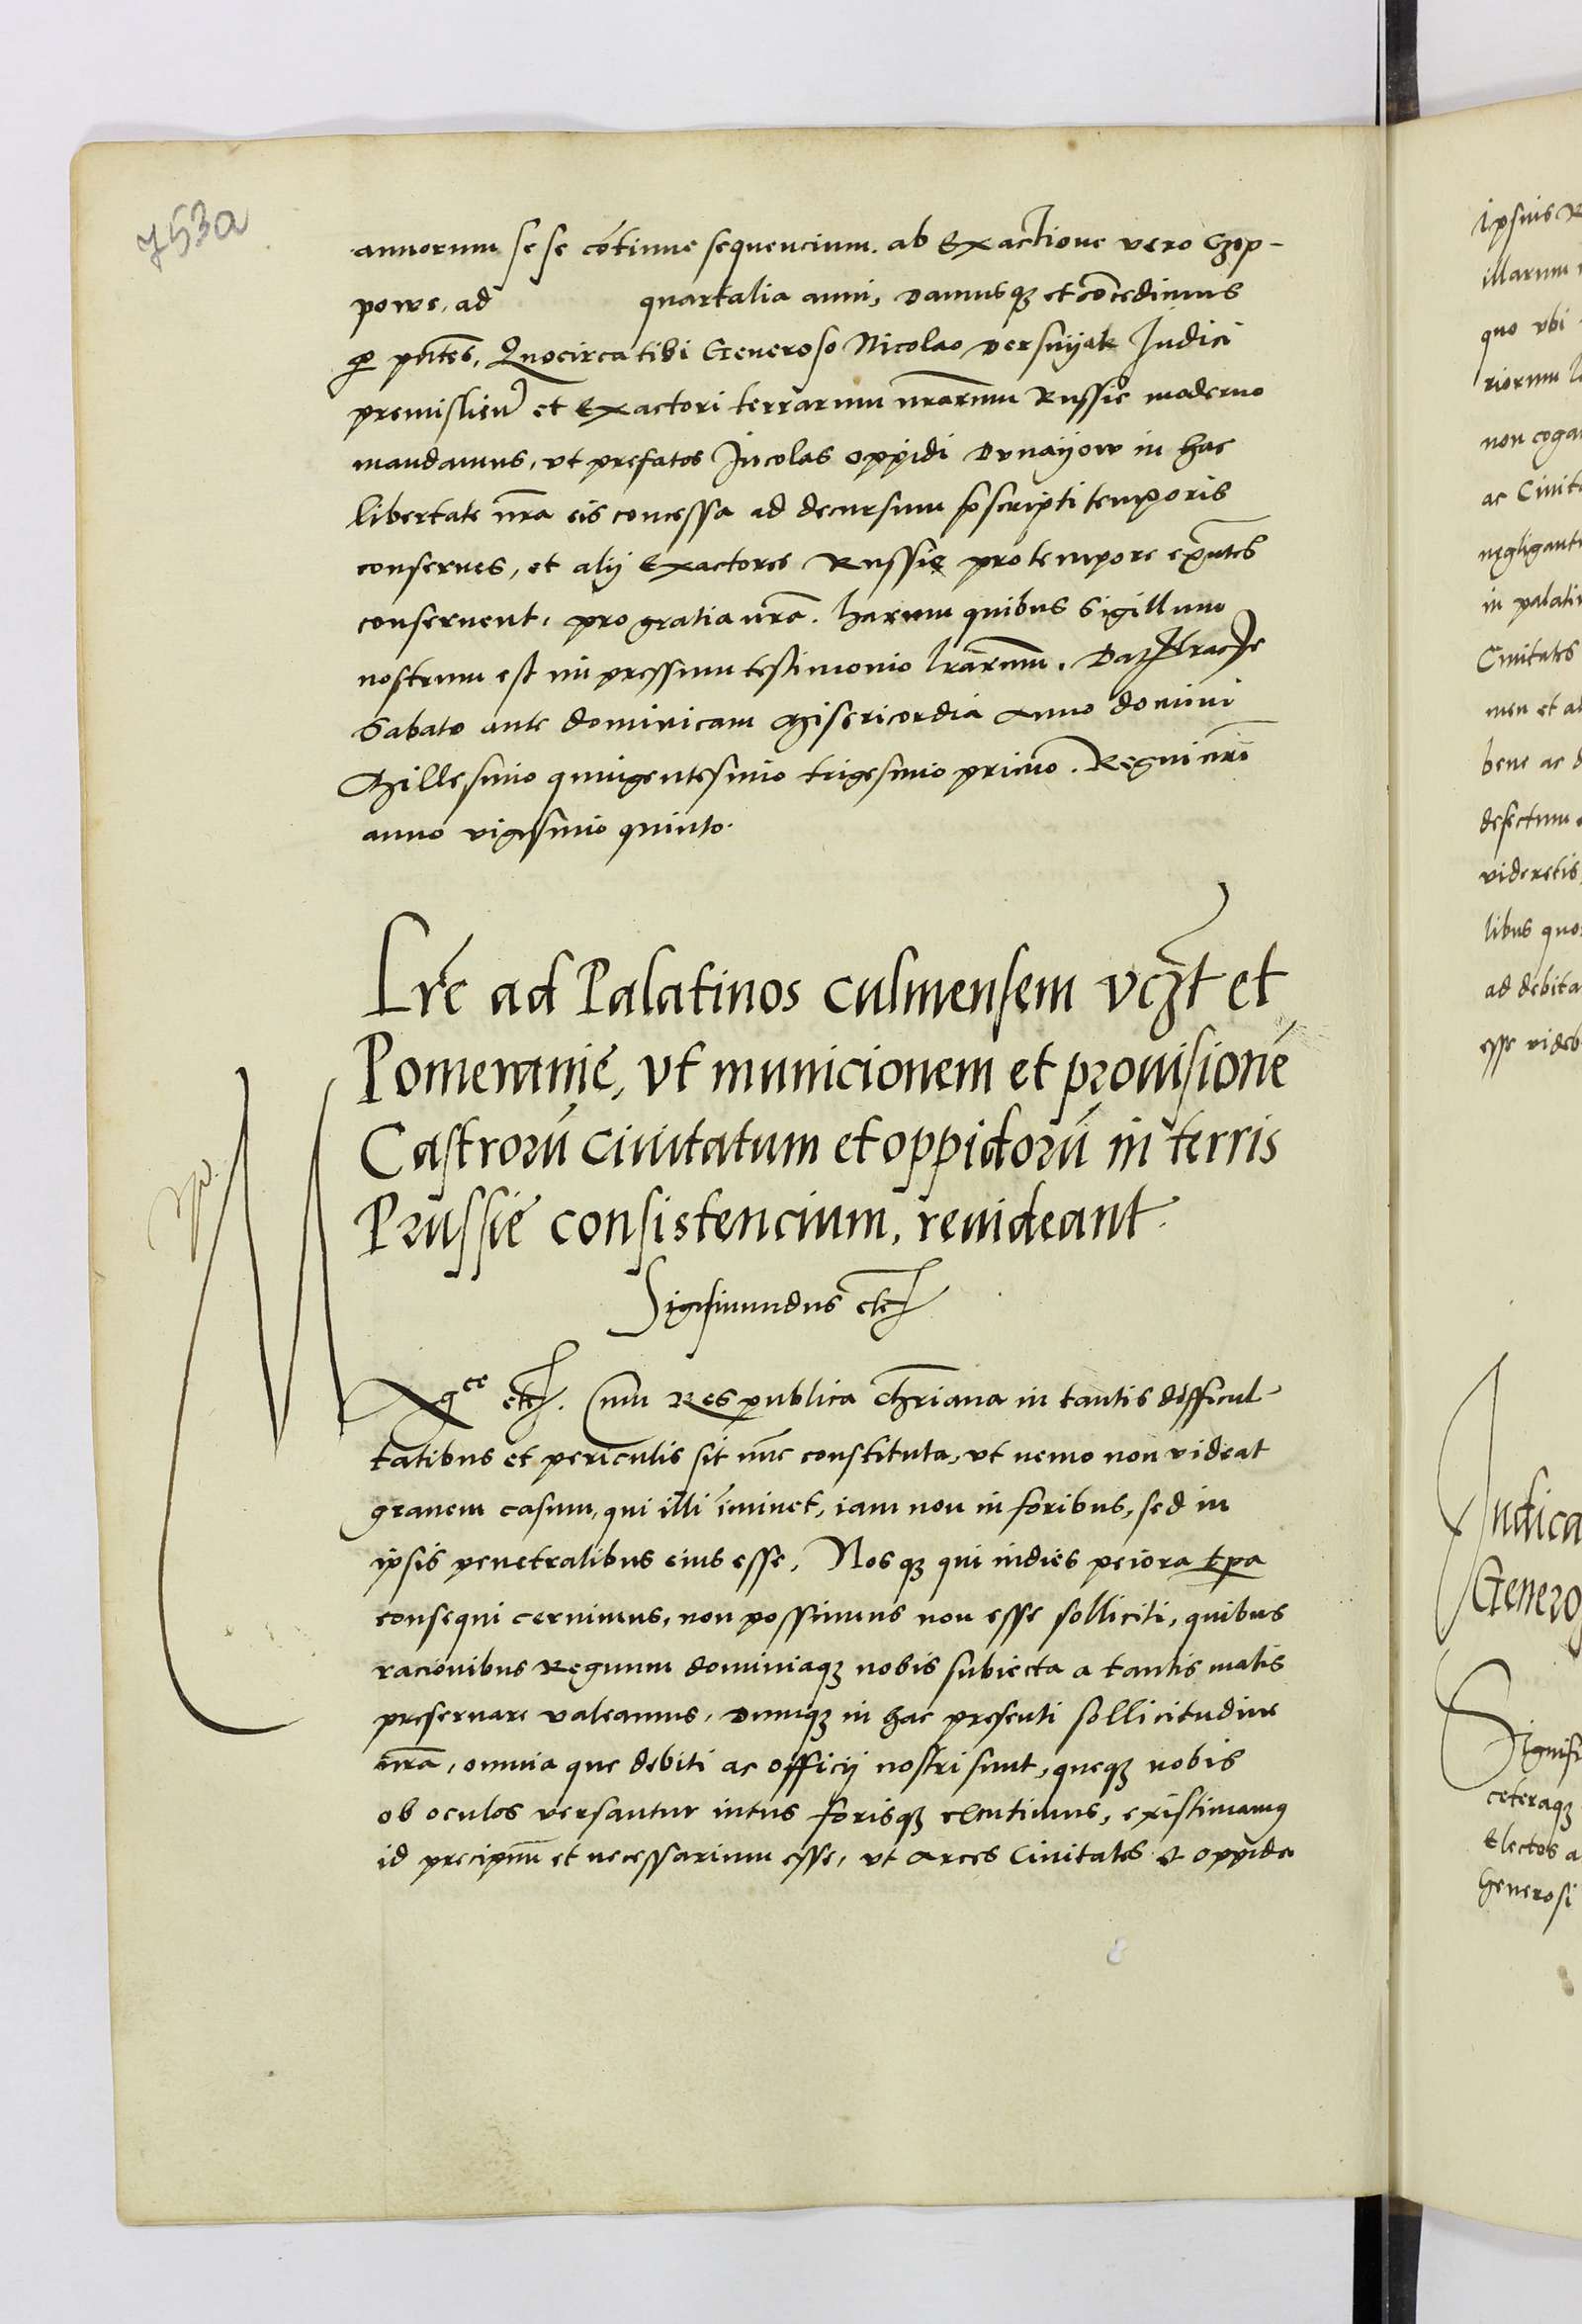 753a
annorum sese cōtinue sequencium. ab Exactione vero Czop-
powe, ad quartalia anni, Damusqȝ et cōcedimus
ꝑ pn̄tes, Quocirca tibi Generoso Nicolao Dersnijak Judici
premislien̄ et Exactori terrarum nr̄arum Russie moderno
mandamus, vt prefatos Incolas oppidi Dvnaijow in hac
libertate nr̄a eis concessa ad decursum p̄scripti temporis
conserues, et alij Exactores Russie pro tempore exn̄tes
conseruent, pro gratia nr̄a. harum quibus Sigillum
nostrum est impressum testimonio lr̄arum. Dat Craco
Sabato ante dominicam Misericordia Anno domini
Millesimo quingentesimo trigesimo primo. Regni nr̄i
anno vigesimo quinto.
Lr̄e ad Palatinos culmensem vcz̄t et
Pomeranie, vt municionem et prouisionē
Castrorū ciuitatum et oppidorū in terris
Prussie consistencium, reuideant.
Sigismundus etc
Mgce etc. Cum Respublica chr̄iana in tantis difficul-
tatibus et periculis sit nūc constituta, vt nemo non videat
grauem casum, qui illi īminet, iam non in foribus, sed in
ipsis penetralibus eius esse, Nosqȝ qui indies peiora tp̄a
consequi cernimus, non possimus non esse solliciti, quibus
racionibus Regnum dominiaqȝ nobis subiecta a tantis malis
preseruare valeamus, Dumqȝ in hac presenti sollicitudine
nr̄a, omnia que debiti ac officij nostri sunt, queqȝ nobis
ob oculos versantur intus forisqȝ excutimus, existimamus
id precipuū et necessarium esse, vt Arces Ciuitates et oppida
ipsius R
illarum
quo vbi
riorum
non coga
ac Ciuit
negligant
in palati
Ciuitates
men et al
bene ac d
defectum
videretis,
libus quo
ad debita
esse videb
Judica
Genero
Sigis
ceteraqȝ
Electos a
Generosi